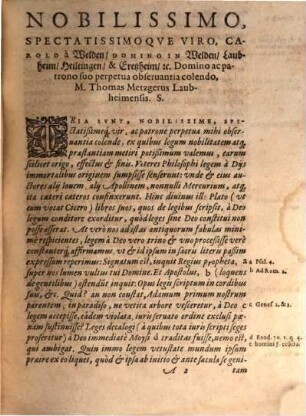 NOBILISSIMO,
SPECTATISSIMOQVE VIRO, CA-
ROLO à Welden / DOMINO IN Welden / Laub-
heim / Heltingen / & Eroltzheim / &c. Domino ac pa-
trono suo perpetua obseruantia colendo,
M. Thomas Metzgerus Laub-
heimensis. S.
TRIA SVNT, NOBILISSIME, SPE-
ctatissimeq; vir, ac patrone perpetua mihi obser-
uantia colende, ex quibus legum nobilitatem atq;
præstantiam metiri potissimum valemus, earum
scilicet origo, effectus & finis. Veteres Philosophi legem à Dijs
immortalibus originem sumpsisse senserunt: vnde & eius
auctores alij Iouem, aly Apollinem, nonnulli Mercurium, atq;
ita cæteri cæteros confinxerunt. Hinc diuinus ille Plato (vt
cum vocat Cicero) libros suos, quos de legibus scripsit, à Deo
legum conditore exorditur, quòd leges sine Deo constitui non
posse asserat. At verò nos adestas antiquorum fabulas mini-
mè respicientes, legem à Deo vero trino & vno processisse verè
constanterq; affirmamus, vt & id ipsum in sacris literis passim
expressum reperimus: Signatum est, inquit Regius propheta,
super nos lumen vultus tui Domine. Et Apostolus, b (loquens
de gentilibus) ostendunt inquit: Opus legis scriptum in cordibus
suis, &c. Quid? an non constat, Adamum primum nostrum
parentem, in paradiso, ne vetita arbore vesceretur, à Deo c
legem accepisse, eadem violata, iuris seruato ordine exclusi pœ-
nam sustinuisse? Leges decalogi (à quibus tota iuris scripti seges
profertur) à Deo immediatè Moysi d traditas fuisse, nemo est,
qui ambigat. Quin immo legem vetustate mundum ipsum
praire ex eo liquet, quòd & ipsa ab initio & ante sæcula se geni-
A 2 tam
a Psal. 4.
b Ad Rom. 2.
c Genes. 2. & 3.
d Exod. 20.